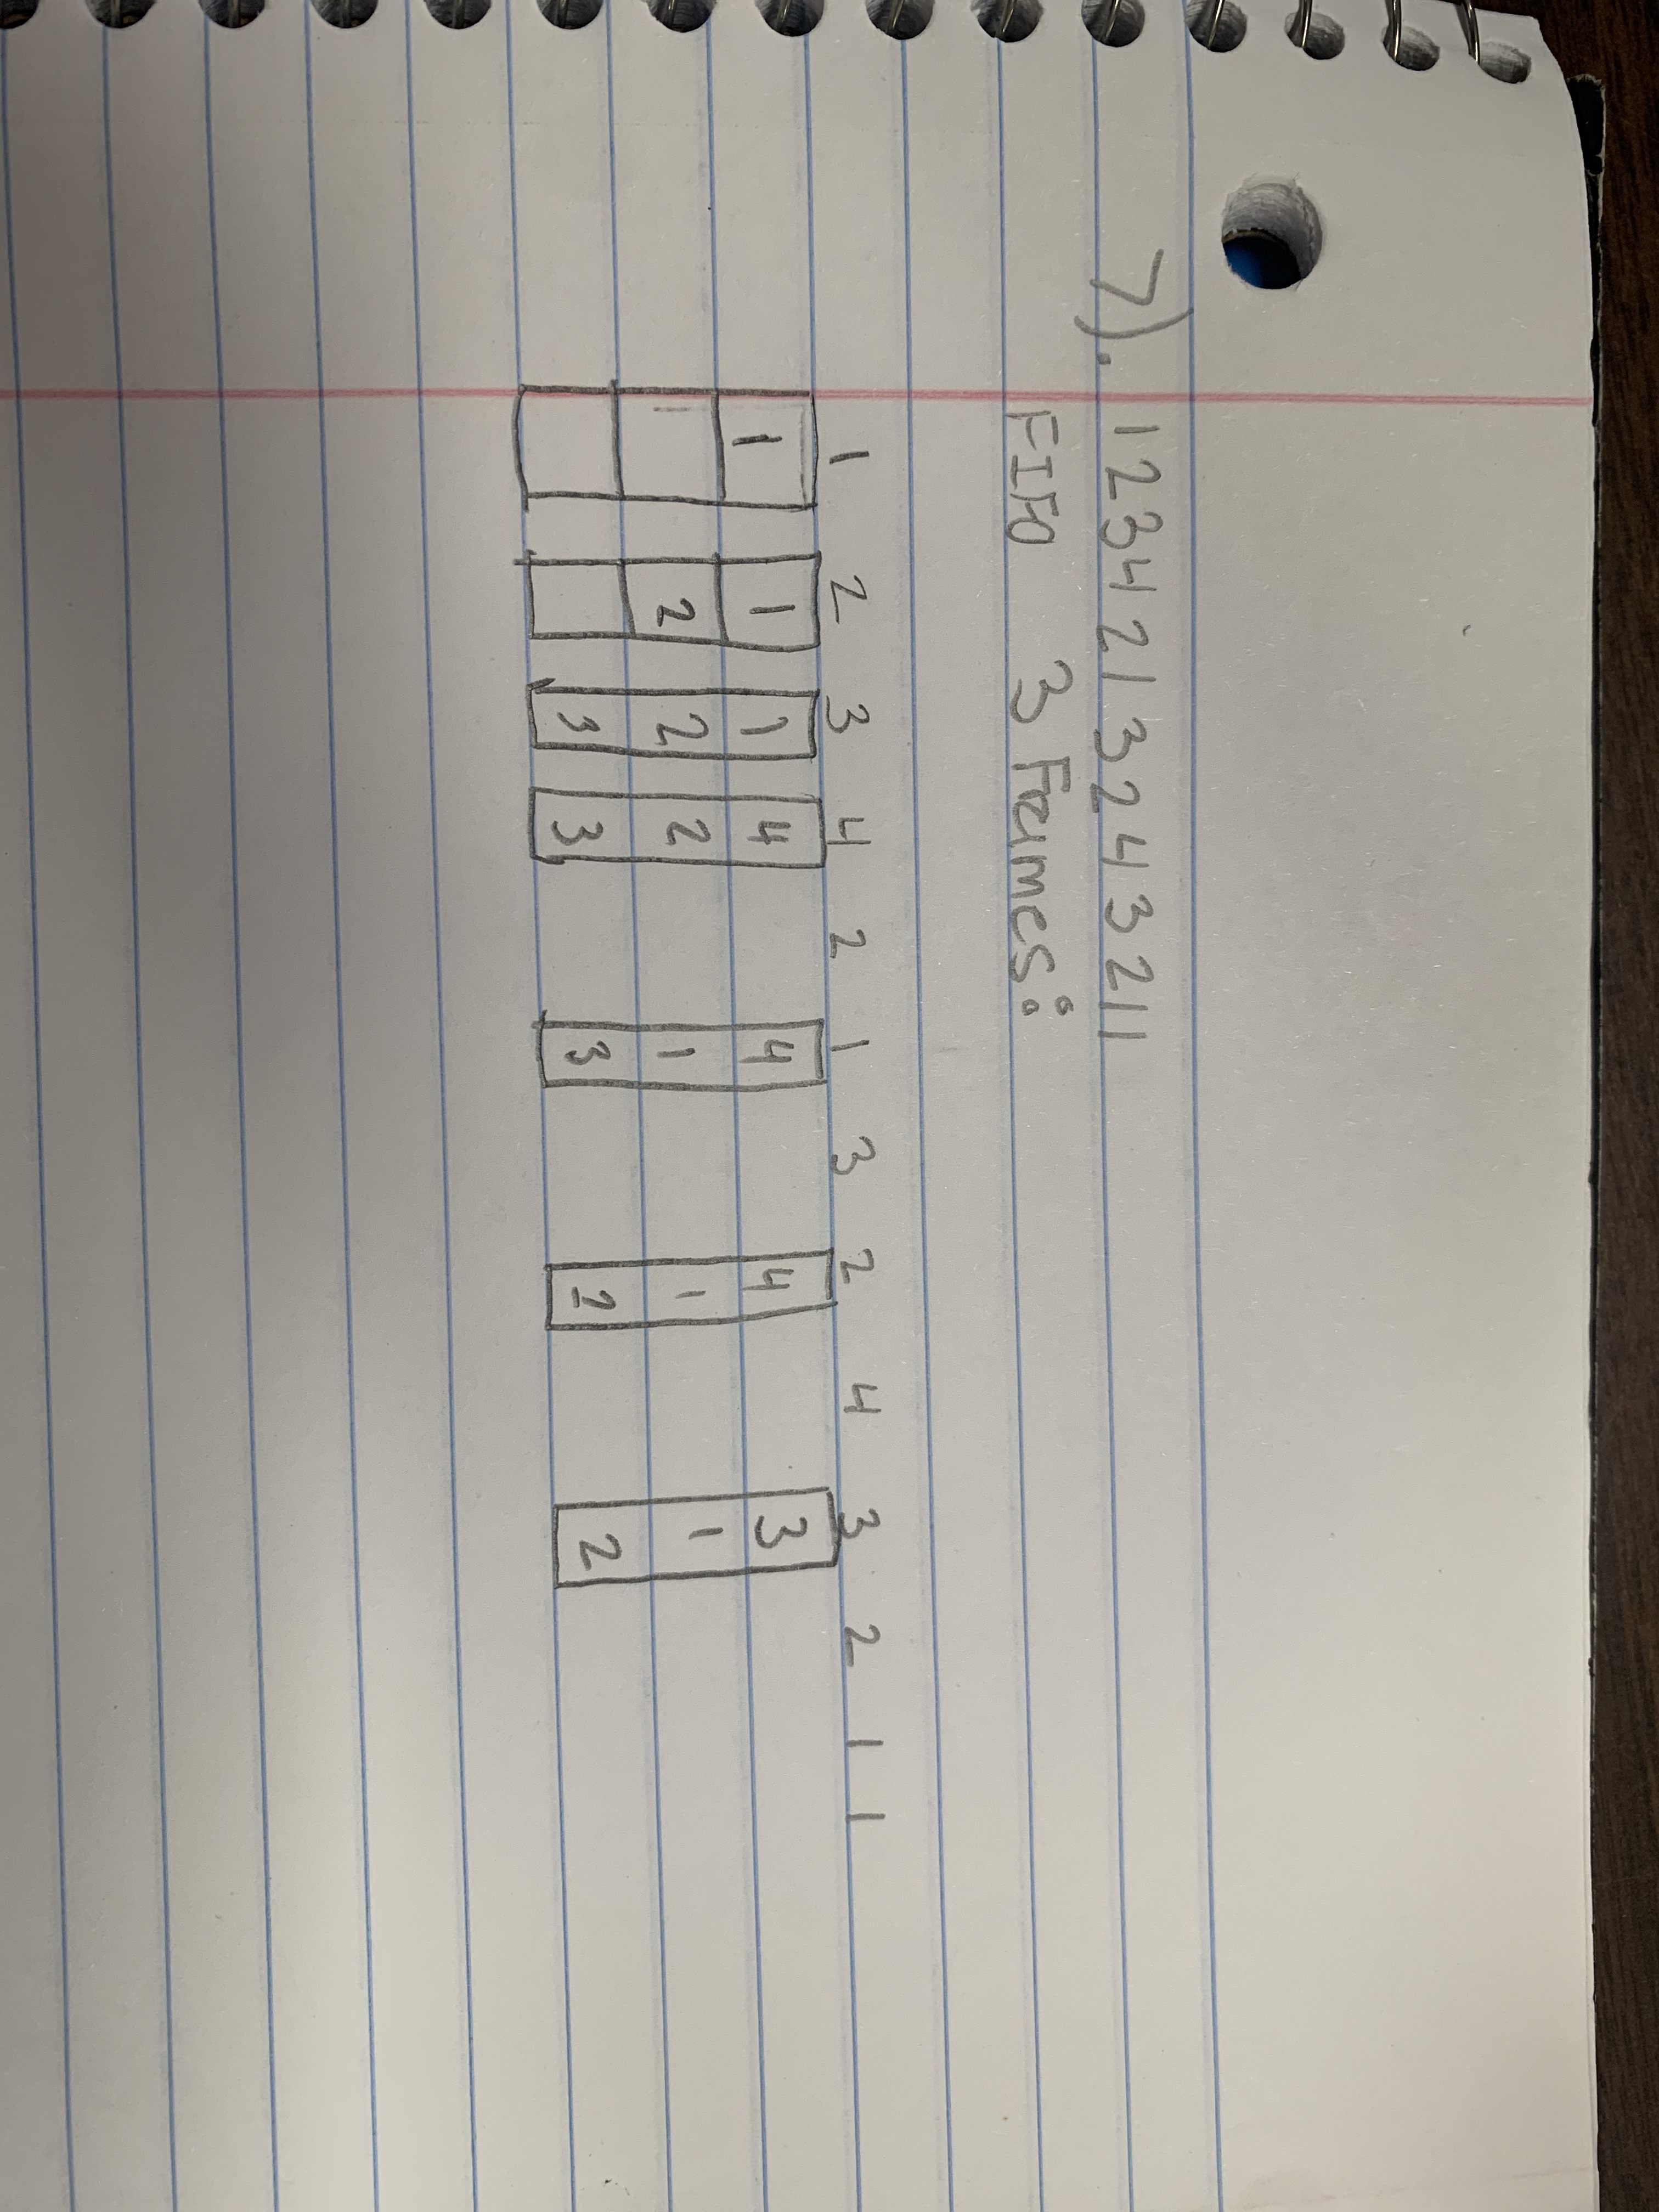 7). 1234 21 324321 1
FIFO 3 Frames:
1 2 3 4 2 1 3 2 4 3 2 1 1
1 1 1 4 4 4 3
2 2 2 1 1 1
3 3 3 2 2